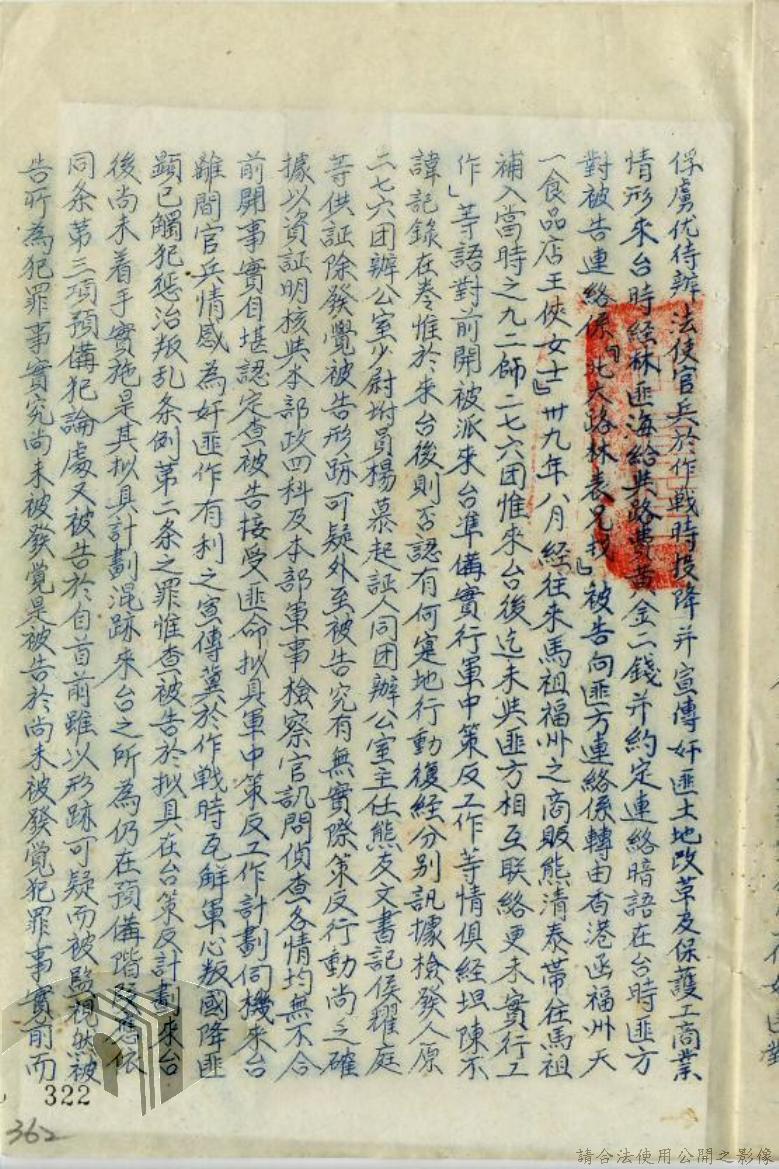 俘虜优待辦法使官兵於作戰時投降并宣傳奸匪土地改革及保護工商業
情形來台時経林匪海給與路費黃金二錢并約定連絡暗語在台時匪方
對被告連絡係「北大路林表兄我」被告向匪方連絡係轉由香港函福州天
一食品店王俠女士」卅九年八月経往來馬祖福州之商販熊清泰帶往馬祖
補入當時之九二師二七六团惟來台後迄未與匪方相互联絡更未實行工
作」等語對前開被派來台準備實行軍中策反工作等情俱経坦陳不
諱記錄在卷惟於來台後則否認有何寔地行動復経分別訊據檢發人原
二七六团辦公室少尉附員楊慕起証人同团辦公室主任熊友文書記侯耀庭
等供証除發覺被告形跡可疑外至被告究有無實際策反行動尚乏確
據以資証明核與本部政四科及本部軍事檢察官訊問偵查各情均無不合
前開事實自堪認定查被告接受匪命拟具軍中策反工作計劃伺機來台
離間官兵情感為奸匪作有利之宣傳冀於作戰時瓦解軍心叛國降匪
顯已觸犯惩治叛乱条例第二条之罪惟查被告於拟具在台策反計劃來台
後尚未着手實施是其拟具計劃混跡來台之所為仍在預備階段應依
同条第三項預備犯論處又被告於自首前雖以形跡可疑而被監視然被
告所為犯罪事實究尚未被發覺是被告於尚未被發覺犯罪事實前而
322
362
請合法使用公開之影像